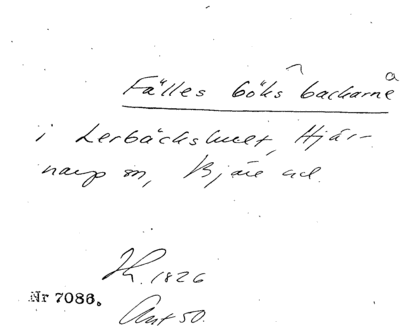 Fälles böks backarne
i Lerbäckshult, Hjär-
narp sn, Bjäre hd.
Jh. 1826
Nr 7086.
Ant 50.